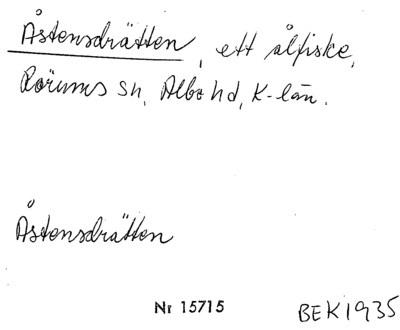 Åstensdrätten, ett ålfiske,
Rörums sn, Albo hd, K-län.
Åstensdrätten
Nr 15715
BEK1935